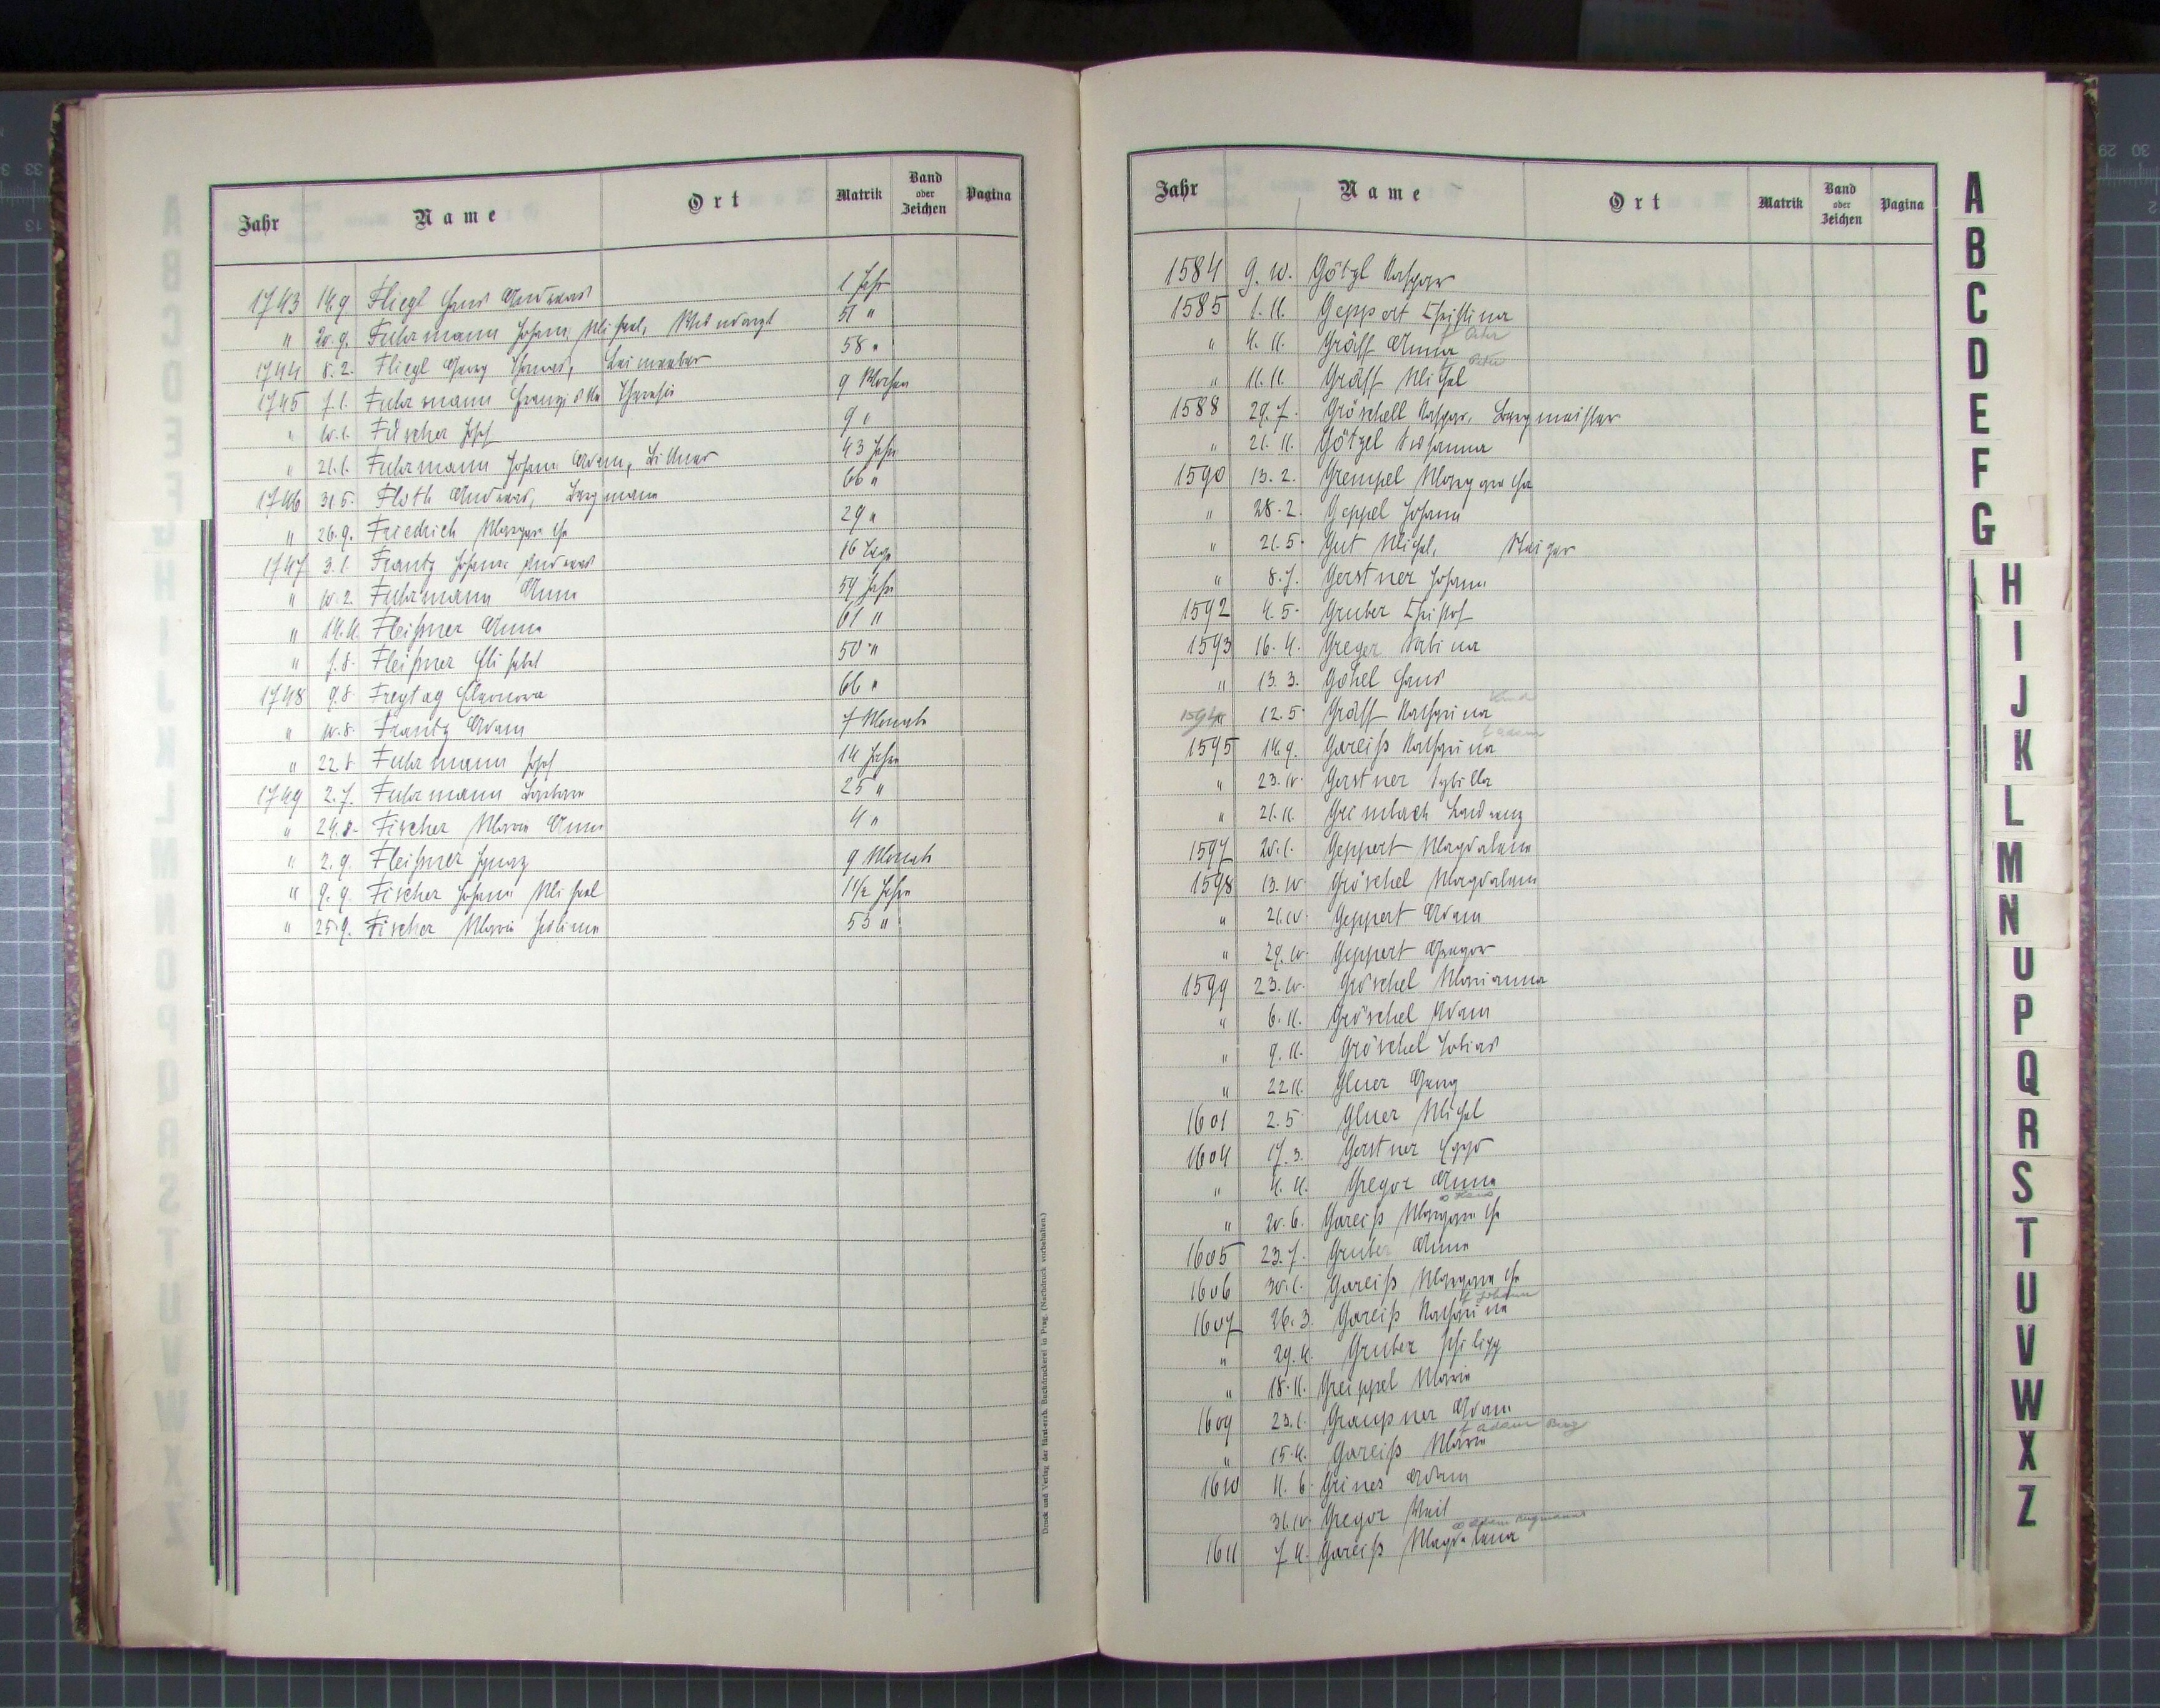 Jahr Name Ort Matrik Band oder Zeichen Pagina
1743 14.9. Fliegl Hans Andreas 1 Jahr
" 20.9. Fuhrmann Johann Michael, 51 "
1744 8.2. Fliegl Georg Thomas, 58 "
1745 7.1. Fuhrmann Franziska Theresia 9 Wochen
" 10.1. Fischer Josef 9 "
" 21.1. Fuhrmann Johann Adam, 43 Jahre
1746 31.5. Floth Andreas, Bergmann 66 "
" 26.9. Friedrich Margarethe 29 "
1747 3.1. Frantz Johann Andreas 16 Tage
" 10.2. Fuhrmann Anna 54 Jahre
" 14.4. Fleißner Anna 61 "
" 1.8. Fleißner Elisabet 50 "
1748 9.8. Freytag Eleonora 66 "
" 10.8. Frantz Adam 7 Monate
" 22.8. Fuhrmann Josef 14 Jahre
1749 2.7. Fuhrmann Barbara 25 "
" 24.8. Fischer Maria Anna 4 "
" 2.9. Fleißner Ignaz 9 Monate
" 9.9. Fischer Johann Michael 1 1/2 Jahre
" 25.9. Fischer Maria 53 "
Druck und Verlag der fürst-erzb. Buchdruckerei in Prag. (Nachdruck vorbehalten.)
Jahr Name Ort Matrik Band oder Zeichen Pagina
1584 9.10. Götzl Kaspar
1585 1.11. Geppert Christina
" 4.11. Gräff Anna
" 11.11. Gräff Michel
1588 29.7. Gröschell Kaspar, Bergmeister
" 21.11. Götzel Susanna
1590 13.2. Grempel Margaretha
" 28.2. Geppel Johann
" 21.5. Gut Michel, Steiger
" 8.7. Gerstner Johann
1592 4.5. Gruber Christof
1593 16.4. Greger Sabina
" 13.3. Göhel Hans
1594 " 12.5. Gräff Katharina
1595 14.9. Gareiß Katharina
" 23.10. Gerstner Sybilla
" 21.11. Grimbach
1597 20.1. Geppert Magdalena
1598 13.10. Gröschel Magdalena
" 21.10. Geppert Adam
" 29.10. Geppert Gregor
1599 23.10. Gröschel Marianna
" 6.11. Gröschel Adam
" 9.11. Gröschel Tobias
" 22.11. Gluer Georg
1601 2.5. Gluer Michel
1604 17.3. Gerstner
" 4.4. Gregor Anna
∞ Hans
" 20.6. Gareiß Margarethe
1605 23.7. Gruber Anna
1606 30.1. Gareiß Margarethe
1607 26.3. Gareiß Katharina
" 29.4. Gruber Philipp
" 18.11. Greippel Maria
1609 23.1. Graupner Adam
" 15.4. Gareiß Maria
1610 11.6. Grines Adam
31.10. Gregor Veit
1611 7.4. Gareiß Magdalena
A
B
C
D
E
F
G
H
I
J
K
L
M
N
U
P
Q
R
S
T
U
V
W
X
Z